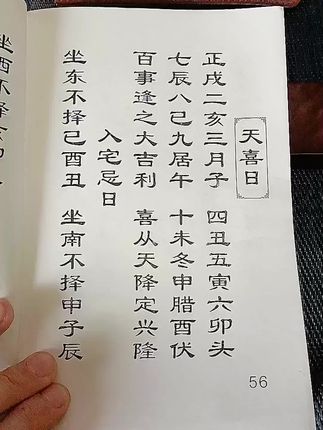 天喜日
正戌二亥三月子 四丑五寅六卯头
七辰八己九居午 十未冬申腊酉伏
百事逢之大吉利 喜从天降定兴隆
入宅忌日
坐东不择己酉丑 坐南不择申子辰
坐西不择
56